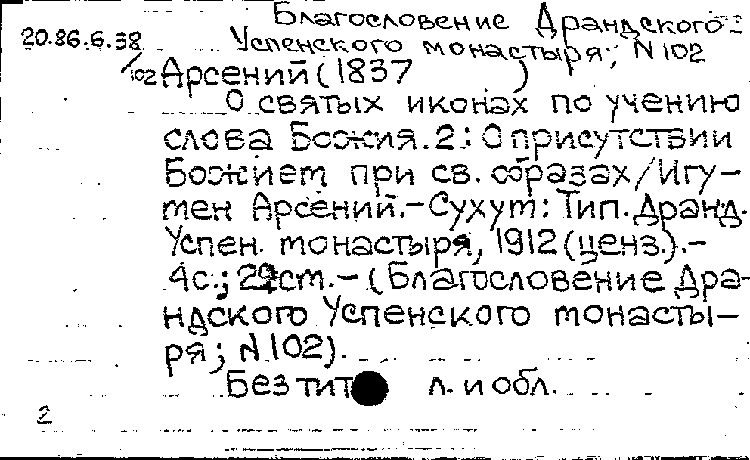 Благословение Драндского
20.86.6.38 Успенского монастыря; N 102
/102 Арсений (1837 )
О святых иконах по учению
слова Божия. 2: О присутствии
Божием при св. образах/Игу-
мен Арсений.-Сухум: Тип. Дранд.
Успен. монастыря, 1912 (ценз.).-
4с.; см.-(Благословение Дра-
ндского Успенского монасты-
ря; N 102).
Без тит л. и обл.
2